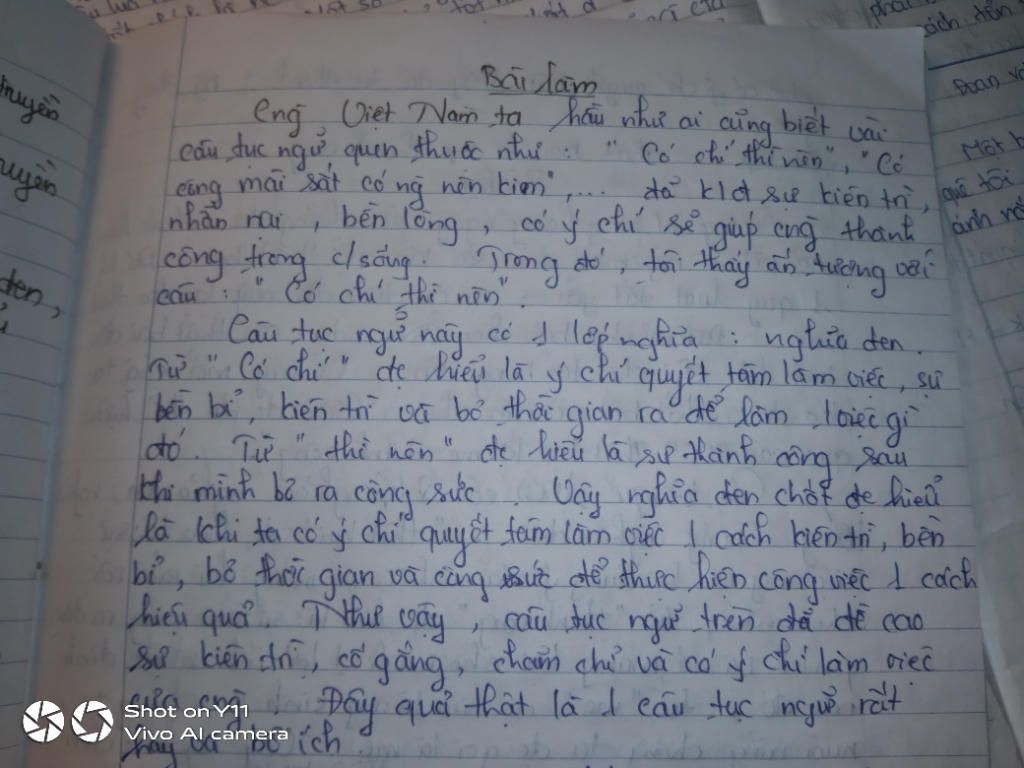 Bài làm
Cng Việt Nam ta hầu như ai cũng biết vài
câu tục ngữ quen thuộc như: "Có chí thì nên", "Có
công mài sắt có ng nên kim",... đã klđ sự kiên trì,
nhẫn nại, bền lòng, có ý chí sẽ giúp cng thành
công trong c/sống. Trong đó, tôi thấy ấn tượng với
câu: "Có chí thì nên".
Câu tục ngữ này có 1 lớp nghĩa: nghĩa đen.
Từ "Có chí" đc hiểu là ý chí quyết tâm làm việc, sự
bền bỉ, kiên trì và bỏ thời gian ra để làm 1 việc gì
đó. Từ "thì nên" đc hiểu là sự thành công sau
khi mình bỏ ra công sức. Vậy nghĩa đen chốt đc hiểu
là khi ta có ý chí quyết tâm làm việc 1 cách kiên trì, bền
bỉ, bỏ thời gian và công sức để thực hiện công việc 1 cách
hiệu quả. Như vậy, câu tục ngữ trên đã đề cao
sự kiên trì, cố gắng, chăm chỉ và có ý chí làm việc
của cng. Đây quả thật là 1 câu tục ngữ rất
hay và bổ ích.
truyền
uyền
đen,
Đoạn
Một
quê tôi
ánh
Shot on Y11
Vivo AI camera